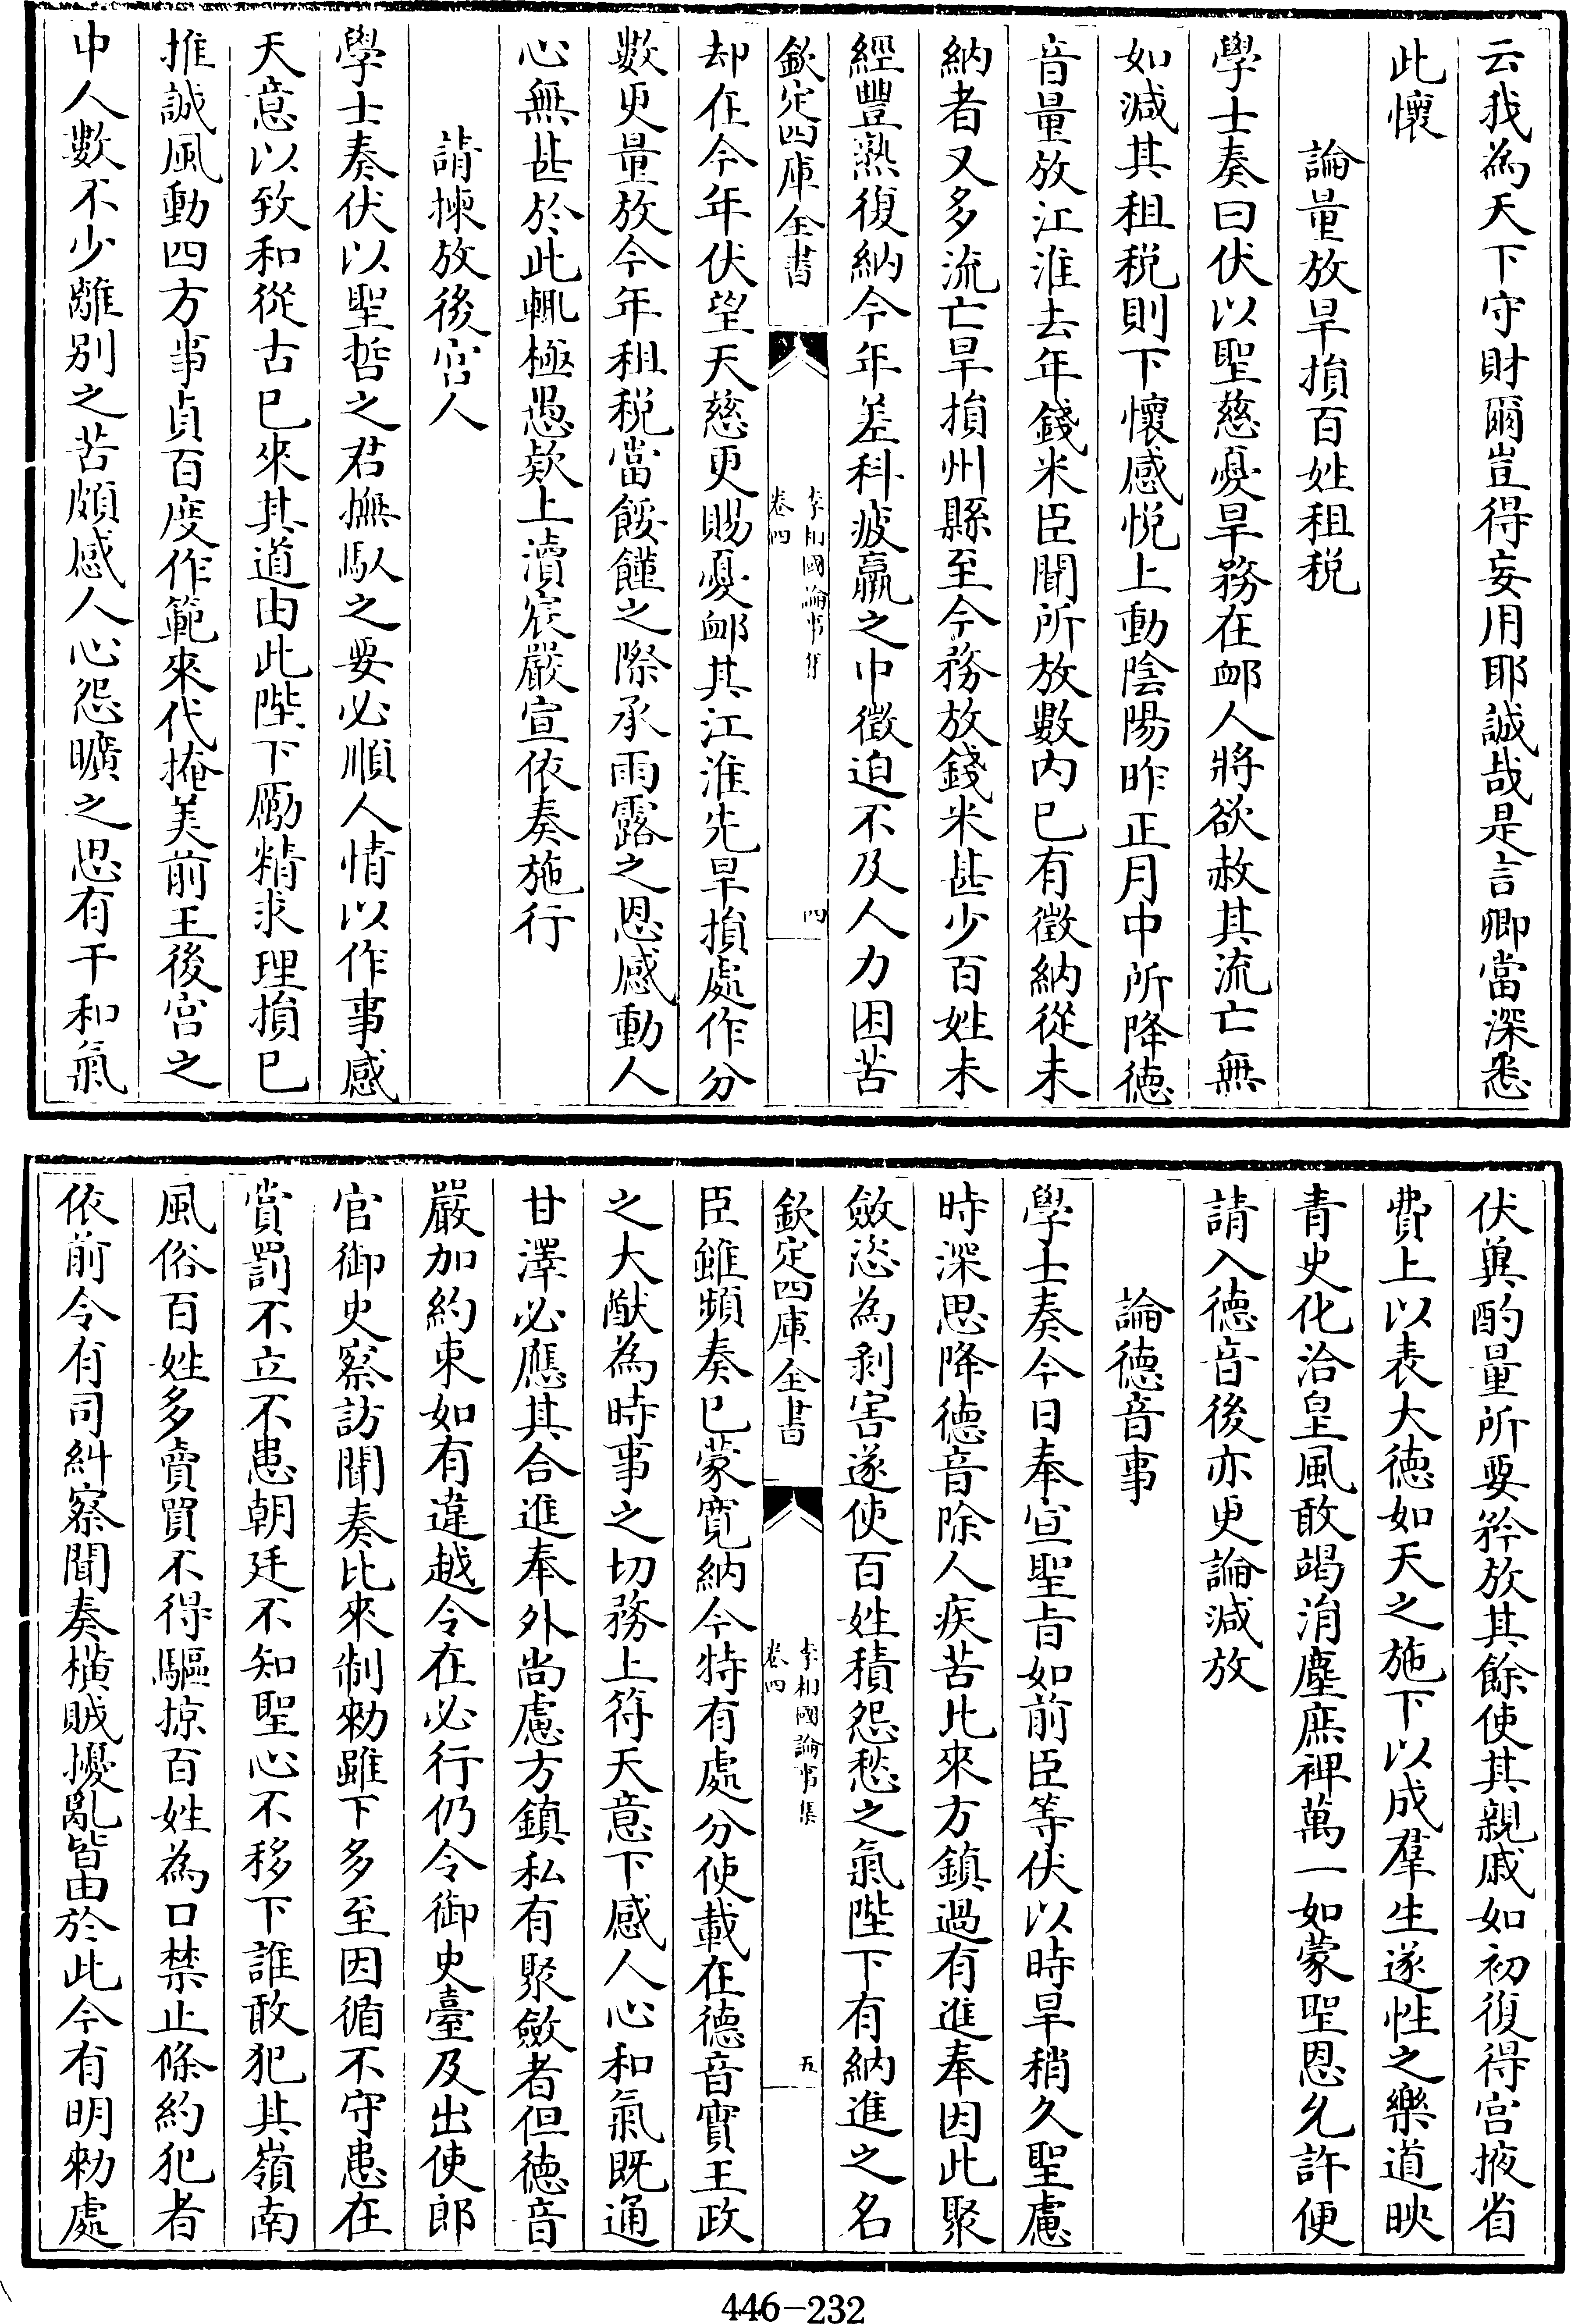 云我為天下守財爾豈得妄用耶誠哉是言卿當深悉
此懷
論量放旱損百姓租税
學士奏曰伏以聖慈憂旱務在䘏人將欲赦其流亡無
如減其租税則下懷感悦上動陰陽昨正月中所降德
音量放江淮去年錢米臣聞所放數内已有徵納從未
納者又多流亡旱損州縣至今務放錢米甚少百姓未
經豐熟復納今年差科疲羸之中徵迫不及人力困苦
欽定四庫全書
李相國論事集
卷四
四
却在今年伏望天慈更賜憂䘏其江淮先旱損處作分
數更量放今年租税當餒饉之際承雨露之恩感動人
心無甚於此輒極愚欵上瀆宸嚴宣依奏施行
請揀放後宫人
學士奏伏以聖哲之君撫馭之要必順人情以作事感
天意以致和從古已來其道由此陛下勵精求理損已
推誠風動四方事貞百度作範來代掩美前王後宫之
中人數不少離别之苦頗感人心怨曠之思有干和氣
伏兾酌量所要矜放其餘使其親戚如初復得宫掖省
費上以表大德如天之施下以成羣生遂性之樂道映
青史化洽皇風敢竭涓塵庶裨萬一如蒙聖恩允許便
請入德音後亦更論減放
論德音事
學士奏今日奉宣聖旨如前臣等伏以時旱稍久聖慮
時深思降德音除人疾苦比來方鎮過有進奉因此聚
斂恣為剥害遂使百姓積怨愁之氣陛下有納進之名
欽定四庫全書
李相國論事集
卷四
五
臣雖頻奏已蒙寛納今特有處分使載在德音實王政
之大猷為時事之切務上符天意下感人心和氣既通
甘澤必應其合進奉外尚慮方鎮私有聚斂者但德音
嚴加約束如有違越令在必行仍令御史臺及出使郎
官御史察訪聞奏比來制勅雖下多至因循不守患在
賞罰不立不患朝廷不知聖心不移下誰敢犯其嶺南
風俗百姓多賣買不得驅掠百姓為口禁止條約犯者
依前令有司糾察聞奏横賊擾亂皆由於此今有明勅處
446-232